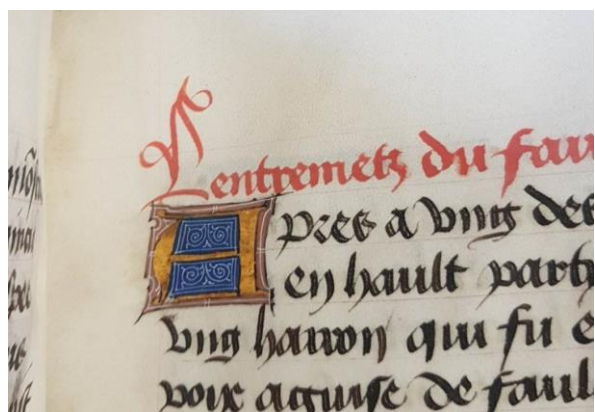 Lentremetz du fau
Apres a vng des
en hault part
vng hairon qui fu e
voix aguise de faul